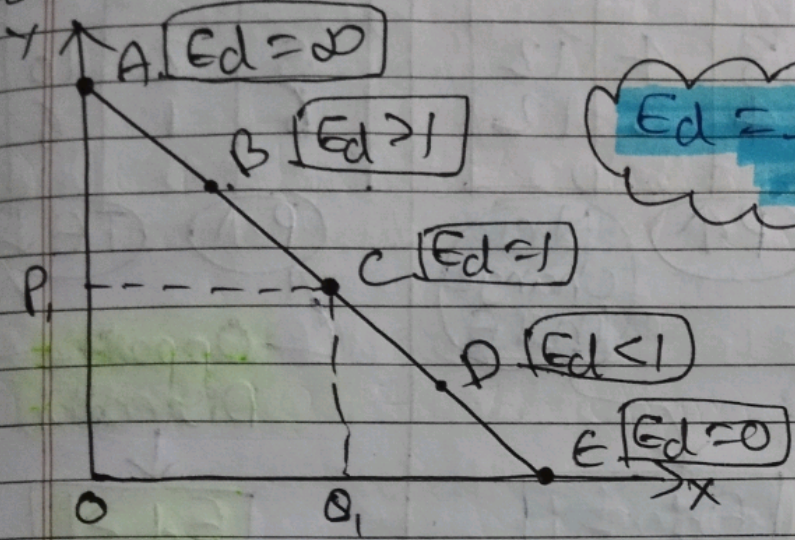 Y
A. Ed = ∞
Ed =
B Ed > 1
C Ed = 1
P1
D Ed < 1
E Ed = 0
O Q1 X